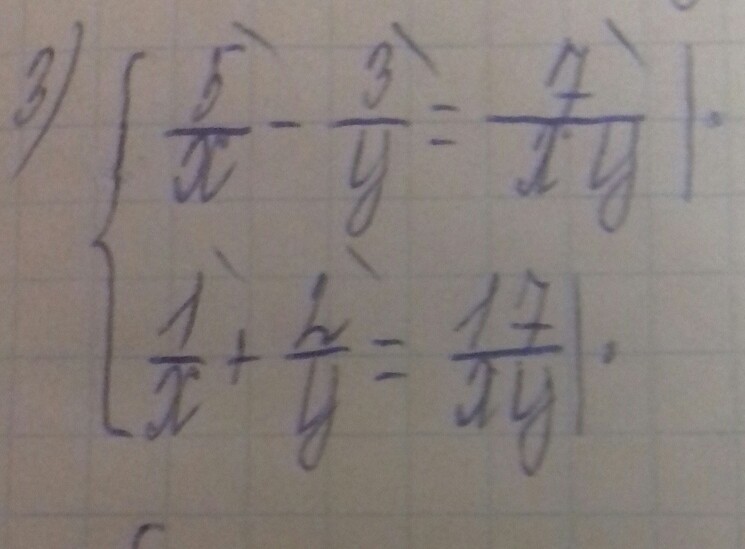 3) { 5/x - 3/y = 7/xy | ·
1/x + 2/y = 17/xy | ·